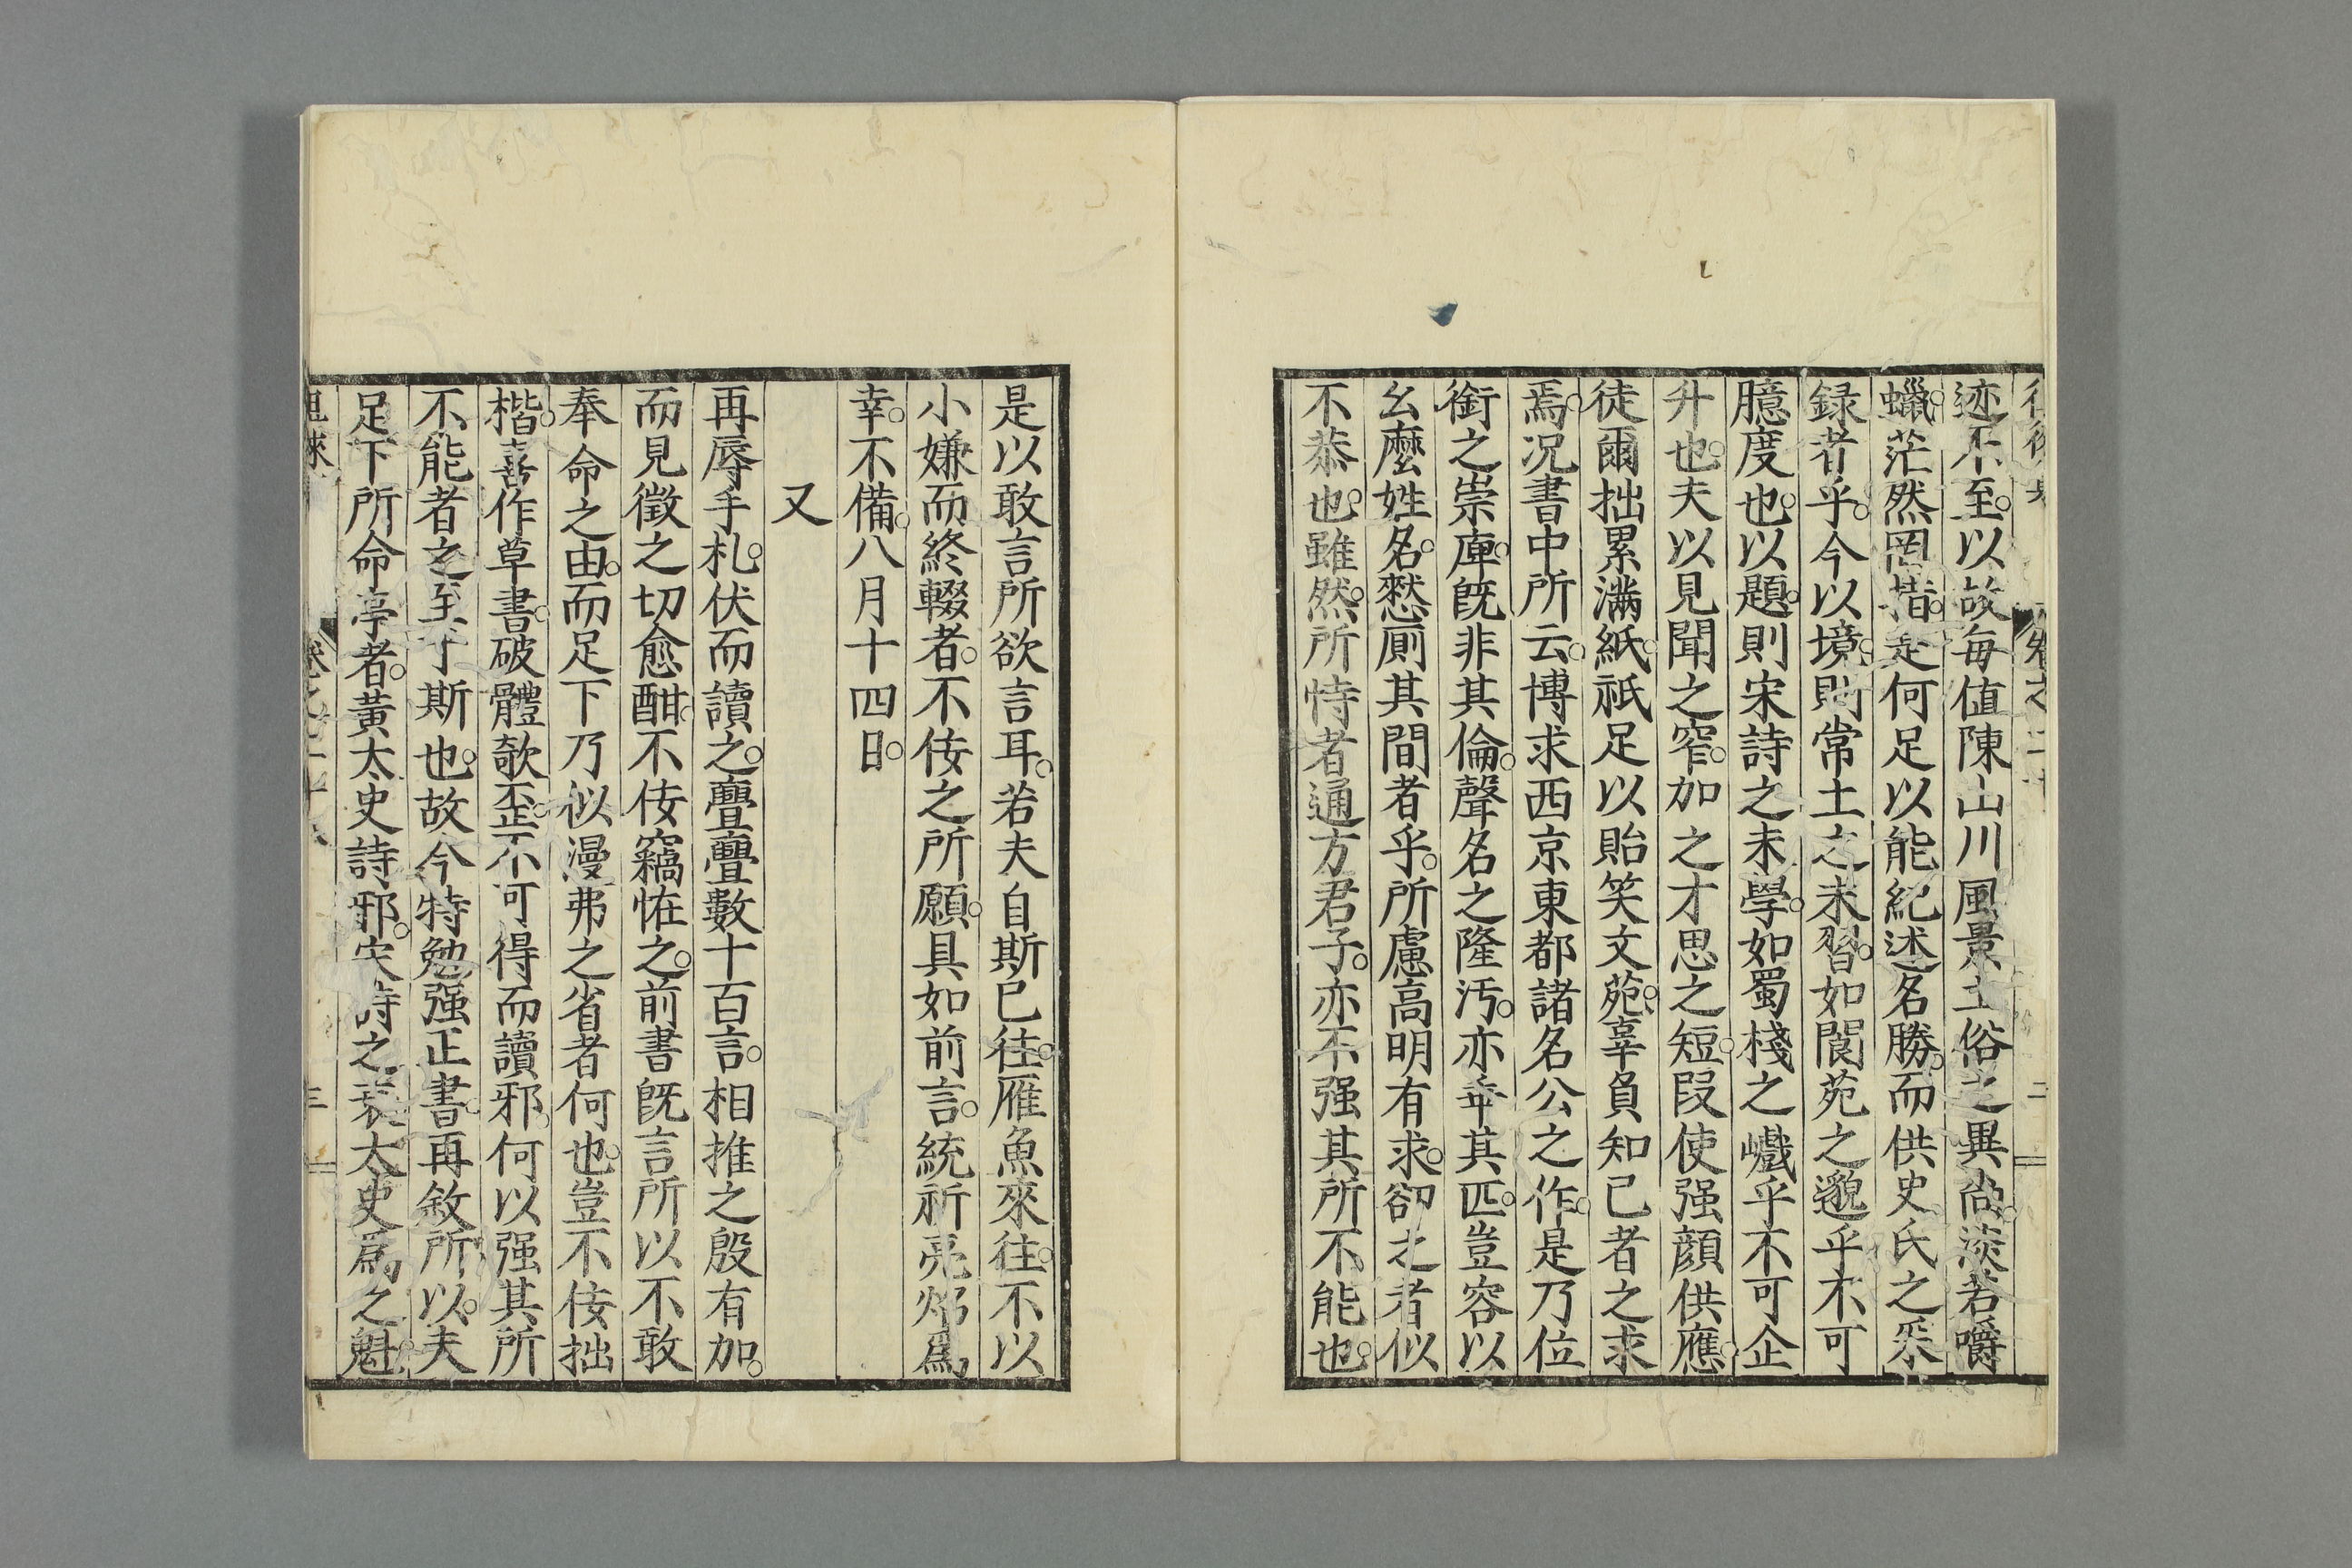 迹不至。以故每值陳山川風景土俗之異尚。淡若嚼
蠟。茫然罔措。走何足以能紀述名勝。而供史氏之采
録者乎。今以境。則常土之未習。如閬苑之邈乎不可
臆度也。以題。則宋詩之未學。如蜀棧之巇乎不可企
升也。夫以見聞之窄。加之才思之短。叚使强顔供應。
徒爾拙累滿紙。祇足以貽笑文苑。辜負知己者之求
焉。况書中所云。博求西京東都諸名公之作。是乃位
銜之崇庳。旣非其倫。聲名之隆汚。亦非其匹。豈容以
幺麼姓名。憗厠其間者乎。所慮高明有求。卻之者似
不恭也。雖然。所恃者通方君子。亦不强其所不能也。
是以敢言所欲言耳。若夫自斯已往。雁魚來往。不以
小嫌而終輟者。不佞之所願。具如前言。統祈亮炤爲
幸。不備。八月十四日。
又
再辱手札。伏而讀之。亹亹數十百言。相推之殷有加。
而見徵之切愈酣。不佞竊恠之。前書旣言所以不敢
奉命之由。而足下乃似漫弗之省者何也。豈不佞拙
楷。喜作草書。破體欹歪。不可得而讀邪。何以强其所
不能者之至于斯也。故今特勉强正書。再敘所以。夫
足下所命亭者。黃太史詩邪。宋詩之衰。太史爲之魁。
徂徠
卷之二十
三